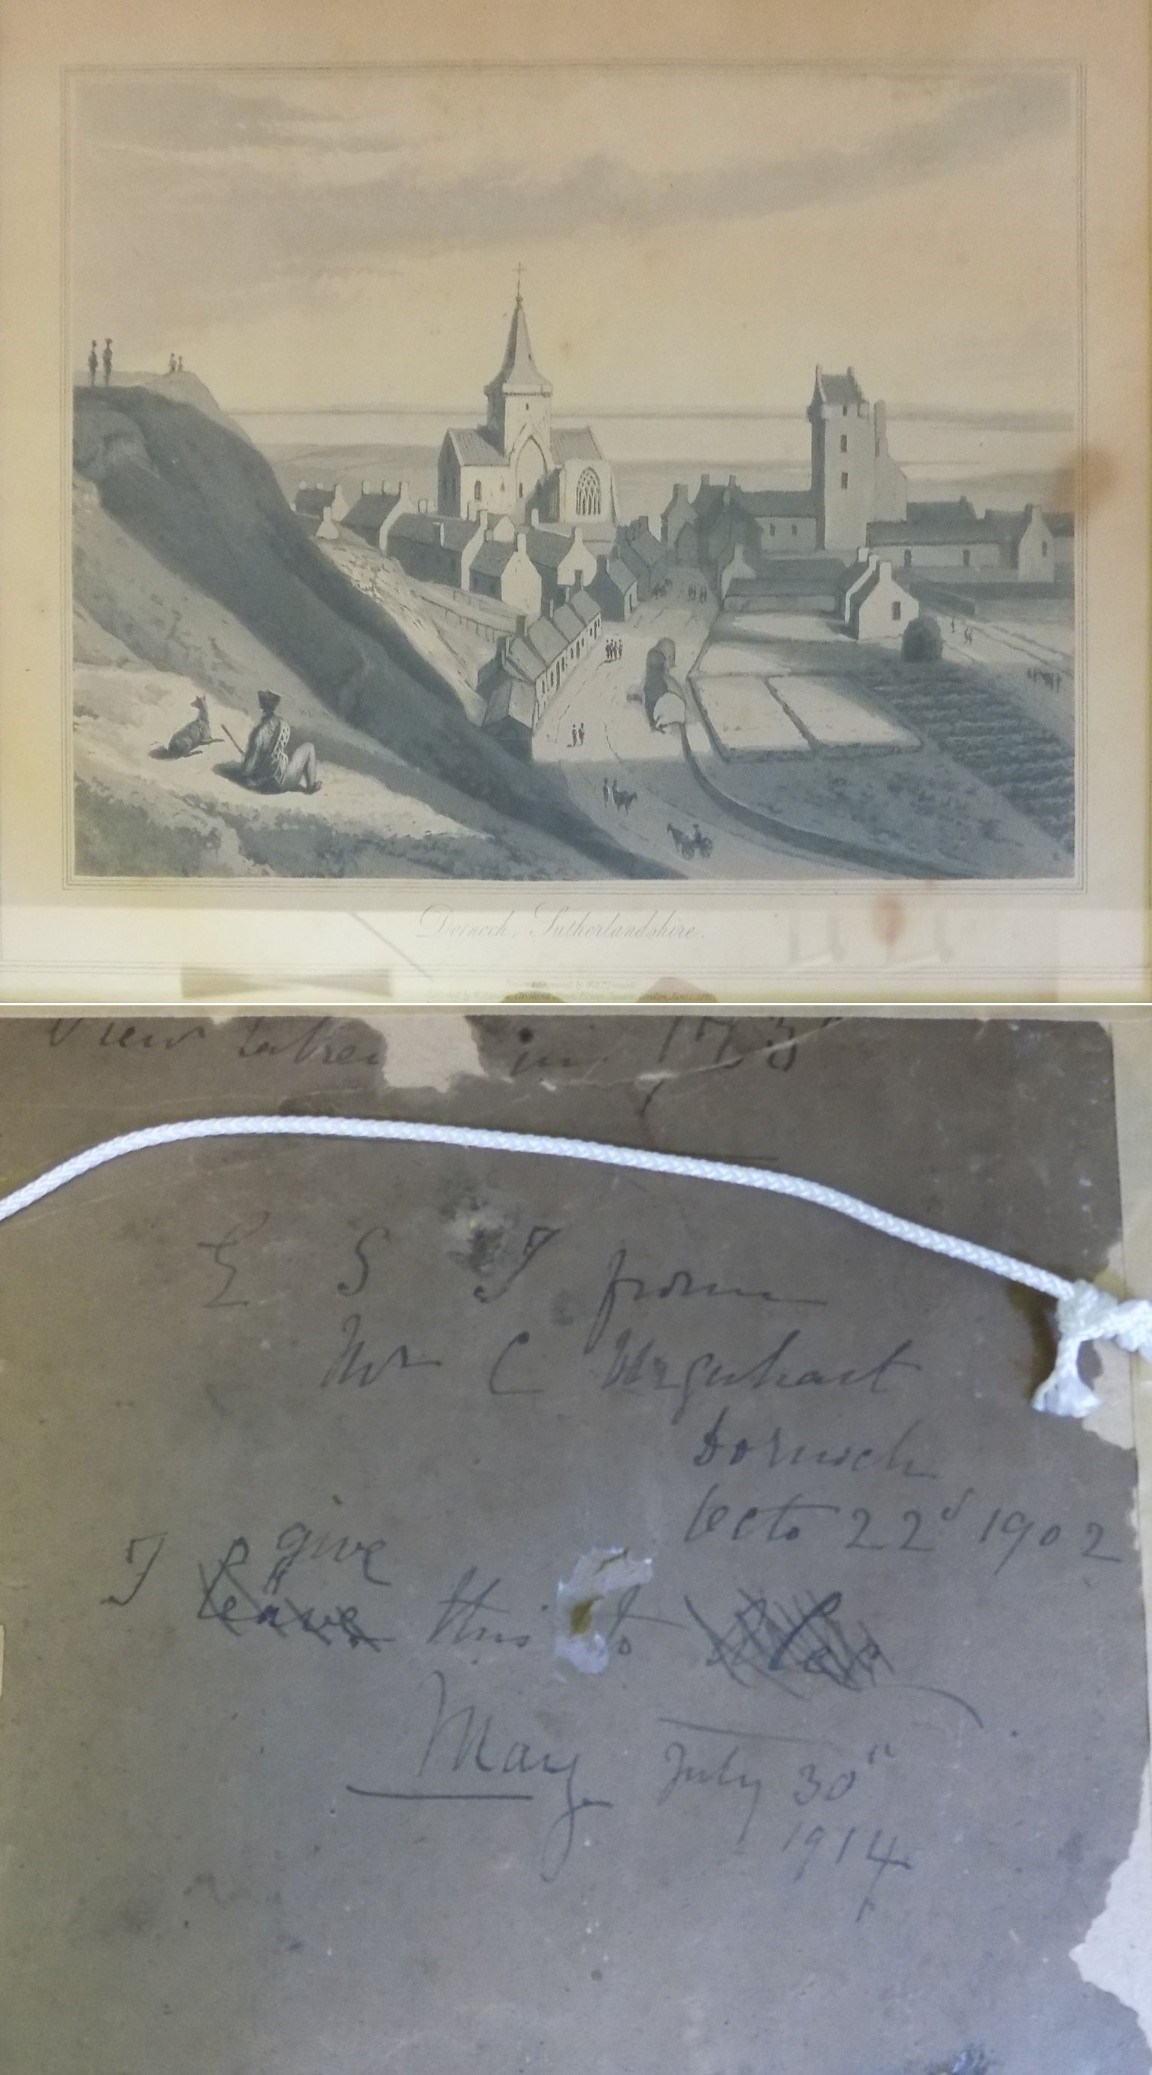 Dornoch, Sutherlandshire.
View taken in 173
E S T from
Mr C Urquhart
Dornoch
Octo 22d 1902
give
I leave this to
May July 30th
1914